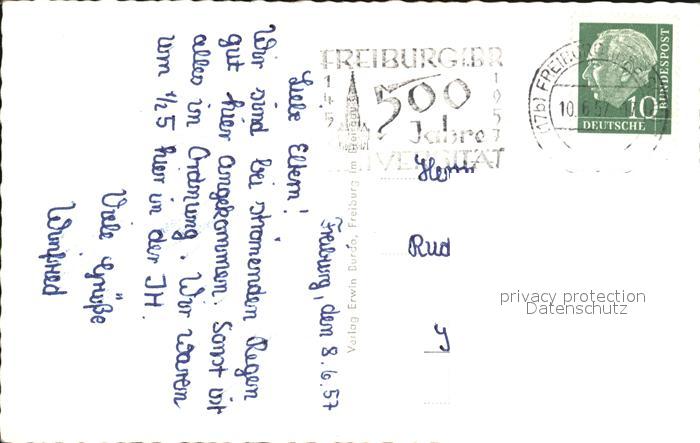 Freiburg, den 8.6.57
Liebe Eltern!
Wir sind bei strömenden Regen
gut hier angekommen. Sonst ist
alles in Ordnung. Wir waren
um ½ 5 hier in der JH.
Viele Grüße
Winfried
Verlag Erwin Burda, Freiburg im Breisgau
FREIBURG I.BR
1457
1957
500
Jahre
UNIVERSITÄT
(17b) FREIBURG
10.6.57
10
DEUTSCHE
BUNDESPOST
Herrn
Rud
privacy protection
Datenschutz